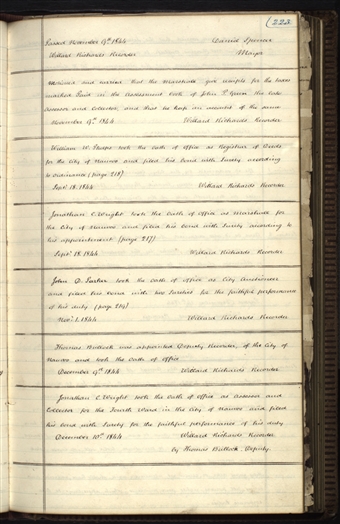 (223
Passed November 9th. 1844 Daniel Spencer
Willard Richards Recorder Mayor
that the Marshall give receipts for the taxes
marked Paid in the Assessment book of John P. Green the late
Assessor and Collector, and that he keep an account of the same
November 9th. 1844 Willard Richards, Recorder
William W. Phelps took the oath of office as Register of Deeds
for the City of Nauvoo and filed his bond with Surety according
to ordinance (page 218)
Sept. 18. 1844 Willard Richards Recorder
Jonathan C. Wright took the Oath of office as Marshall for
the City of Nauvoo and filed his bond with Surety according to
his appointment (page 217)
Sept. 18. 1844 Willard Richards, Recorder
John D. Parker took the oath of office as City Auctioneer
and filed his bond with two Sureties for the faithful performance
of his duty (page 219)
Nov. 1. 1844 Willard Richards Recorder
Thomas Bullock was appointed Deputy Recorder, of the City of
Nauvoo and took the Oath of Office
December 9th. 1844 Willard Richards, Recorder
Jonathan C. Wright took the Oath of office as Assessor and
Collector for the Fourth Ward in the City of Nauvoo and filed
his bond with Surety for the faithful performance of his duty
December 10th. 1844 Willard Richards Recorder
by Thomas Bullock. Deputy